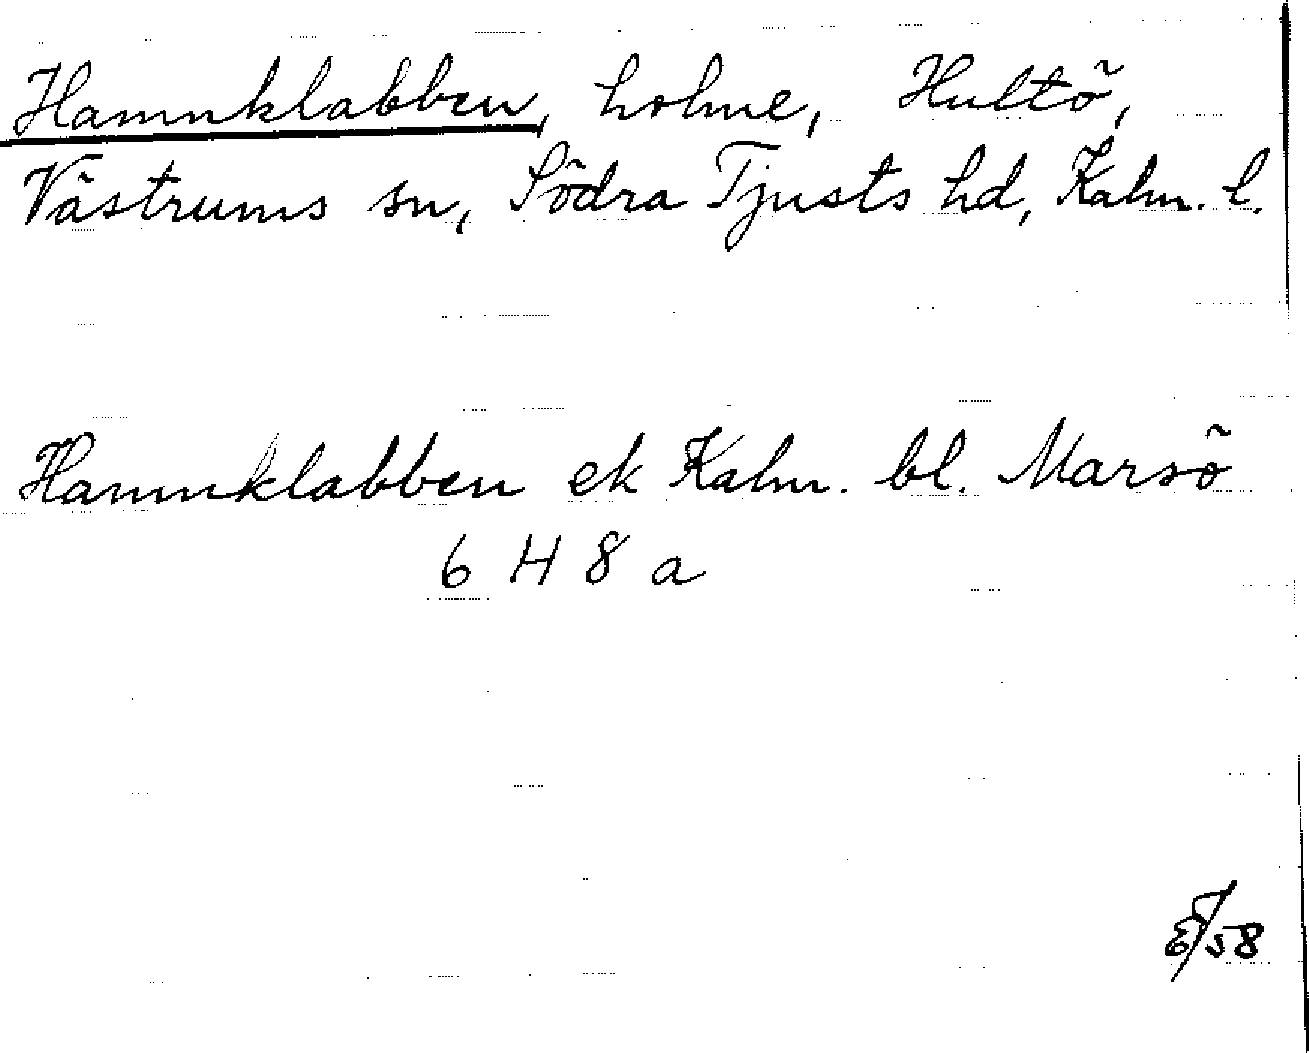 Hamnklabben, holme, Hultö,
Västrums sn, Södra Tjusts hd, Kalm. l.
Hamnklabben ek Kalm. bl. Marsö
6 H 8 a
58